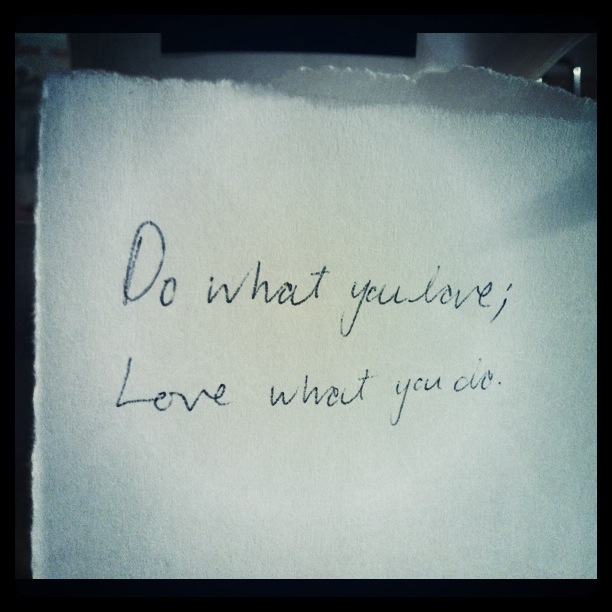 Do what you love;
Love what you do.